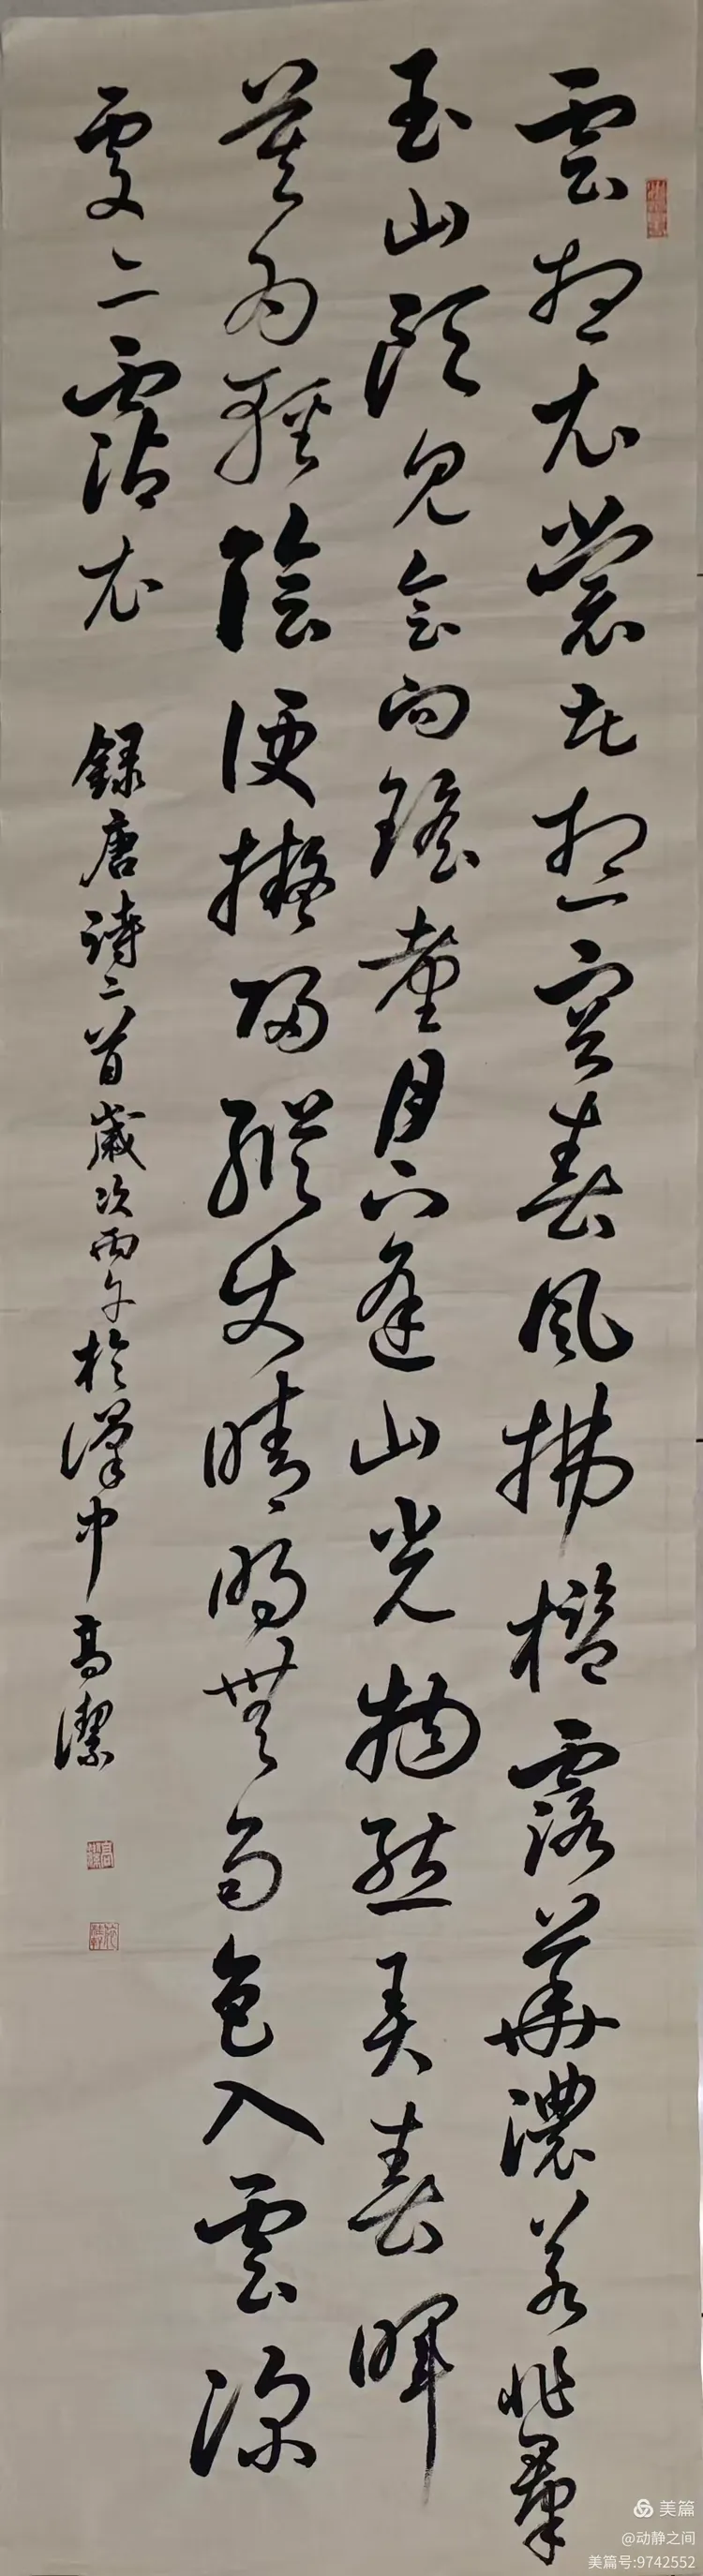 雲想衣裳花想容春風拂檻露華濃若非羣
玉山頭見會向瑤臺月下逢山光物態弄春暉
莫為輕陰便擬歸縱使晴明無雨色入雲深
處亦霑衣
録唐詩二首歲次丙午於漢中高潔
美篇
@动静之间
美篇号:9742552